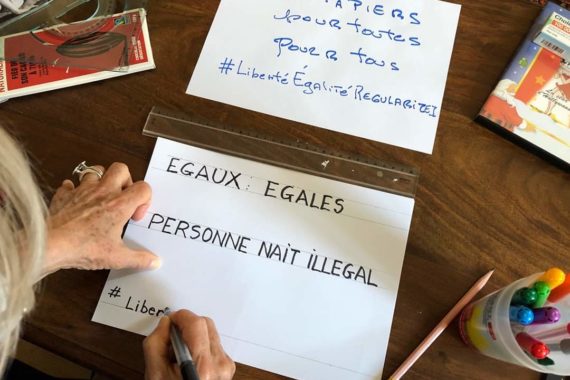 PAPIERS
pour toutes
POUR TOUS
#LibertéÉgalitéRégulariseZ
EGAUX : EGALES
PERSONNE NAIT ILLEGAL
# Liber